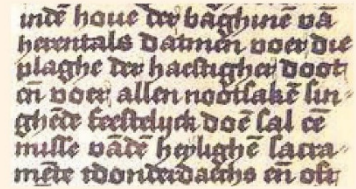 indē houe der baghinē vā
herentals datmen voer die
plaghe der haestigher doot
eñ voer allen nootsakē sin
ghēde feestelyck doē sal eē
misse vādē heylighē sacra-
mēte tdonderdaechs eñ oft